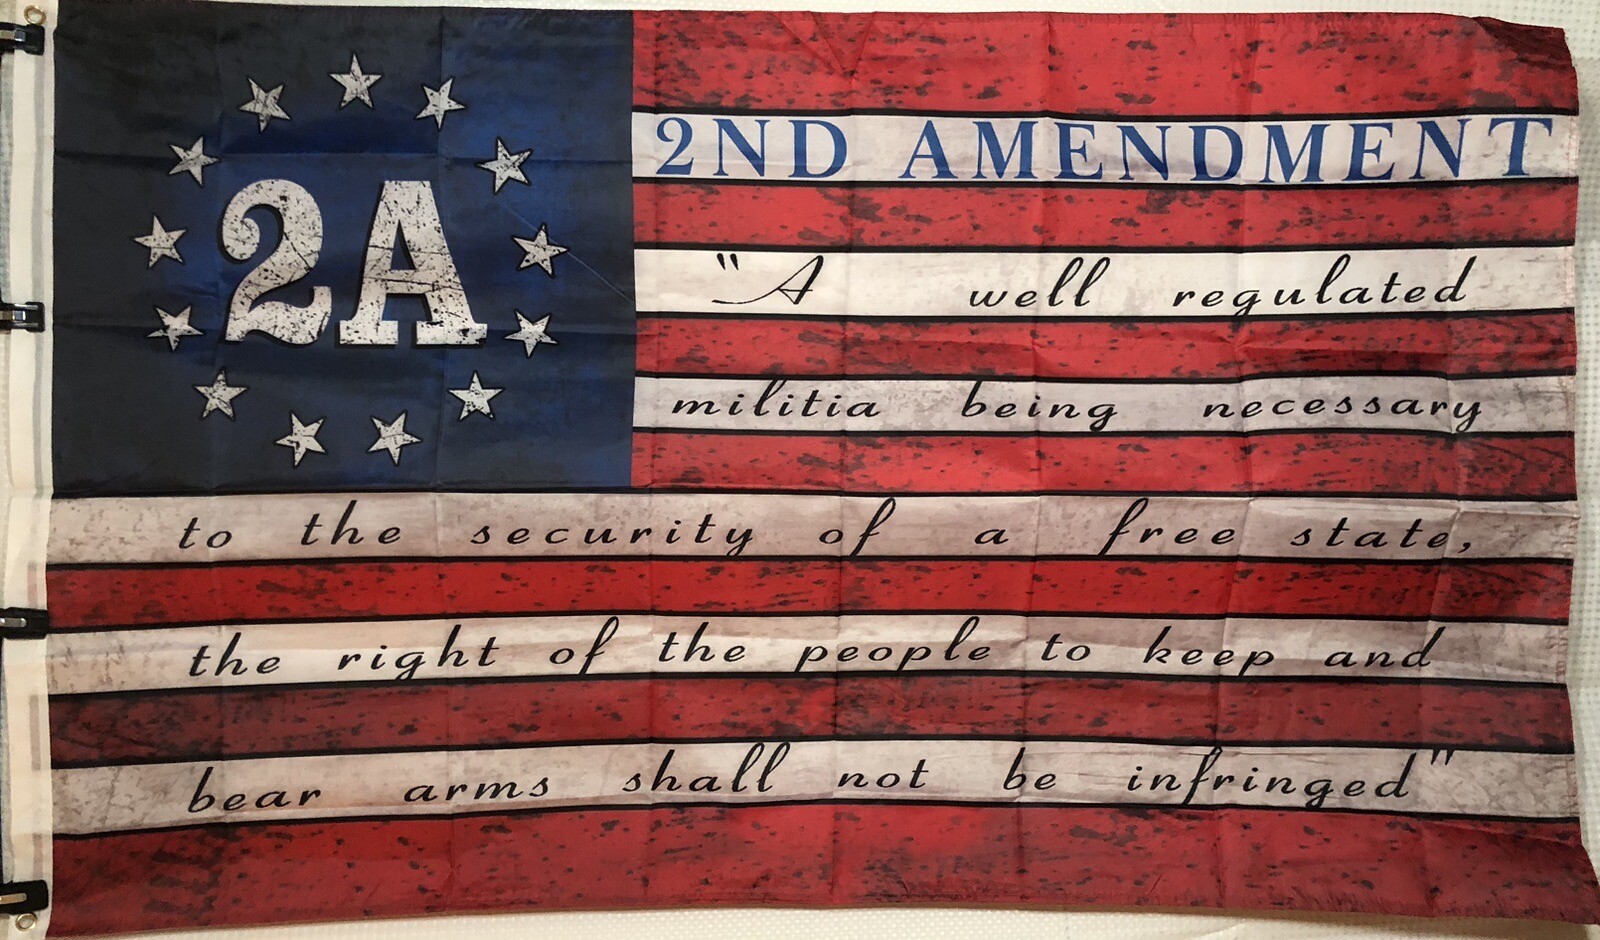 2A
2ND AMENDMENT
"A well regulated
militia being necessary
to the security of a free state,
the right of the people to keep and
bear arms shall not be infringed"